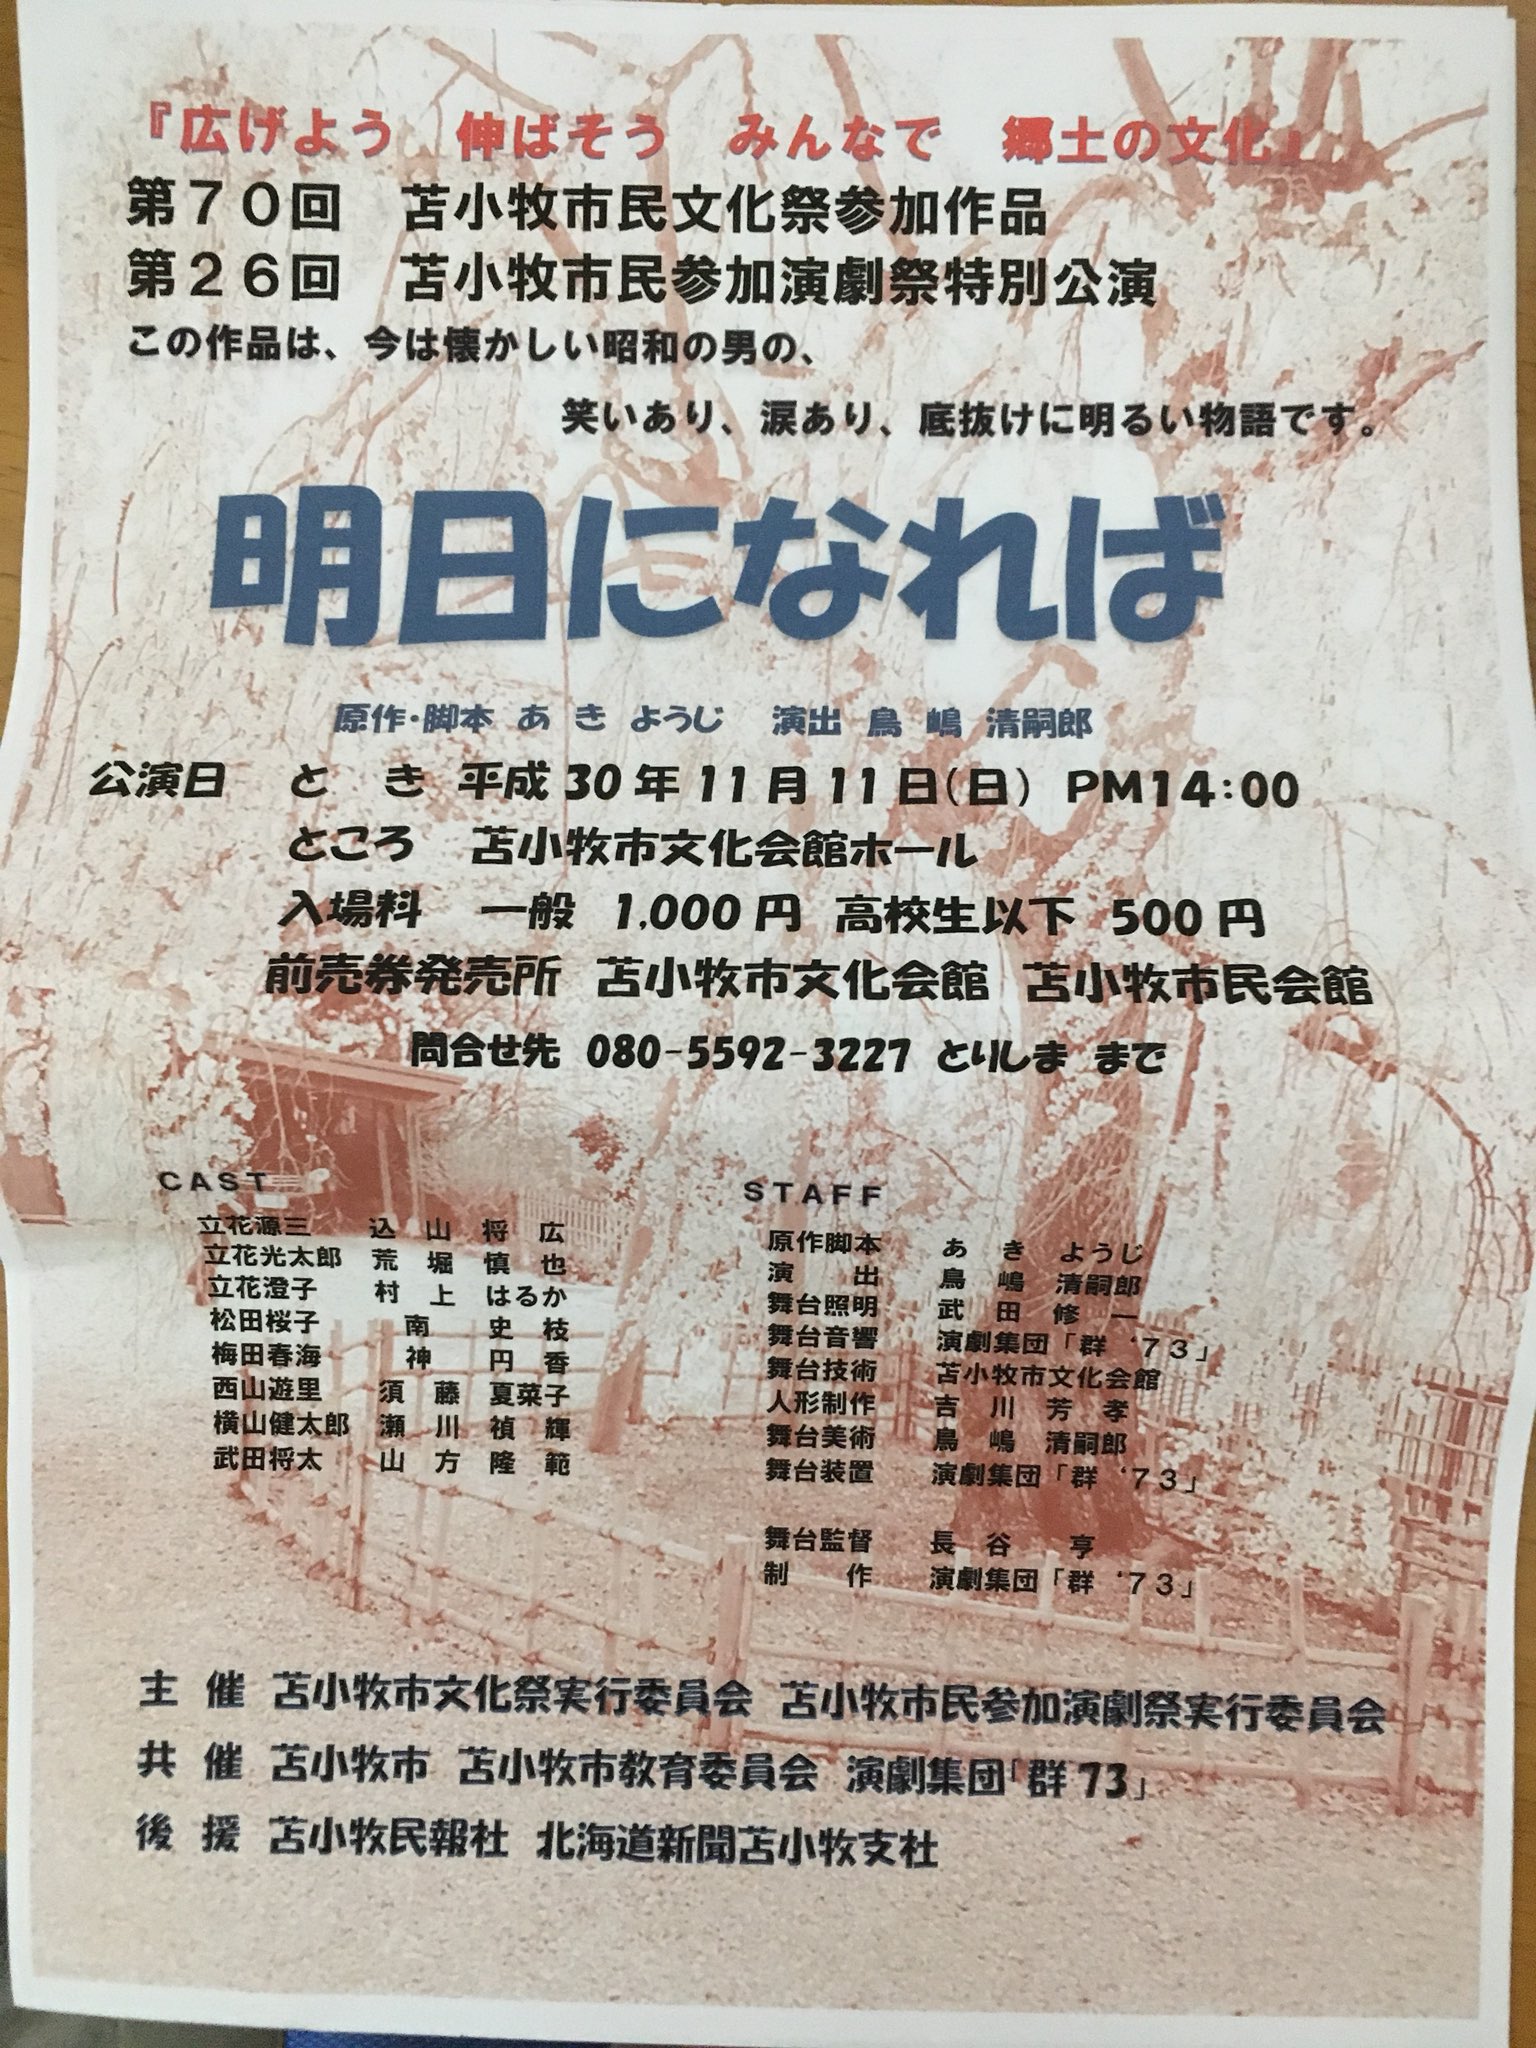 『広げよう　伸ばそう　みんなで　郷土の文化』
第７０回　苫小牧市民文化祭参加作品
第２６回　苫小牧市民参加演劇祭特別公演
この作品は、今は懐かしい昭和の男の、
笑いあり、涙あり、底抜けに明るい物語です。
明日になれば
原作・脚本 あ き ようじ　演出 鳥 嶋 清嗣郎
公演日　と　き 平成 30 年 11 月 11 日(日) PM14:00
ところ　苫小牧市文化会館ホール
入場料　一般 1,000 円 高校生以下 500 円
前売券発売所 苫小牧市文化会館 苫小牧市民会館
問合せ先 080-5592-3227 とりしま まで
CAST
立花源三　込 山 将 広
立花光太郎　荒 堀 慎 也
立花澄子　村 上 はるか
松田桜子　南 史 枝
梅田春海　神 円 香
西山遊里　須 藤 夏菜子
横山健太郎　瀬 川 禎 輝
武田将太　山 方 隆 範
STAFF
原作脚本　あ き ようじ
演　出　鳥 嶋 清嗣郎
舞台照明　武 田 修 一
舞台音響　演劇集団「群 ‘７３」
舞台技術　苫小牧市文化会館
人形制作　吉 川 芳 孝
舞台美術　鳥 嶋 清嗣郎
舞台装置　演劇集団「群 ‘７３」
舞台監督　長 谷 亨
制　作　演劇集団「群 ‘７３」
主 催 苫小牧市文化祭実行委員会 苫小牧市民参加演劇祭実行委員会
共 催 苫小牧市 苫小牧市教育委員会 演劇集団「群 73」
後 援 苫小牧民報社 北海道新聞苫小牧支社